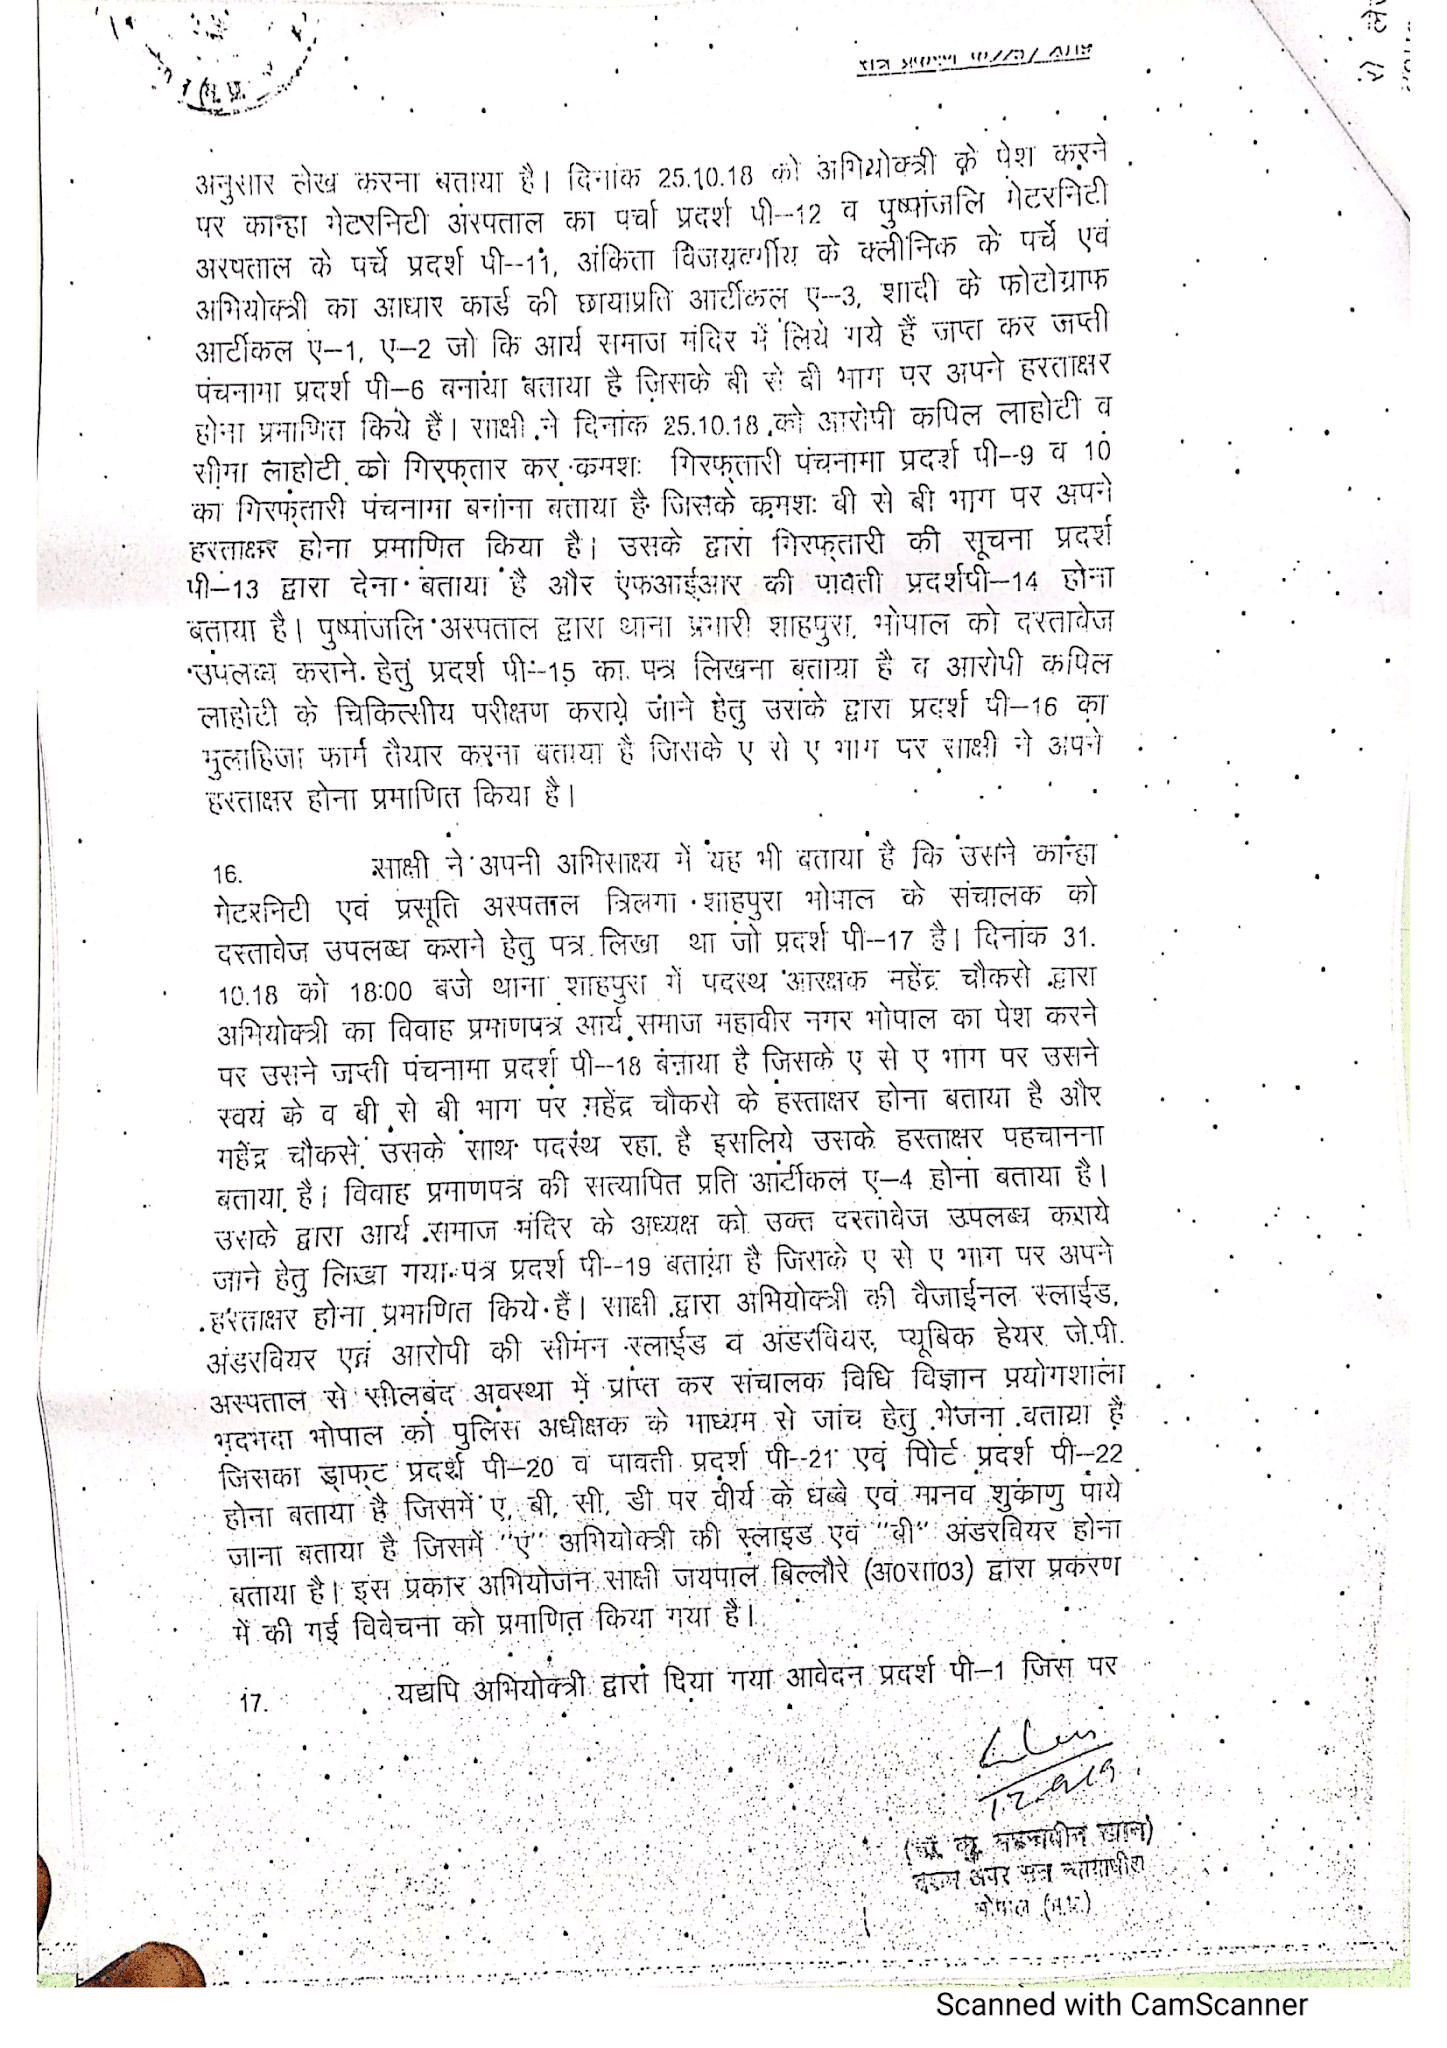 (म.प्र.
सत्र प्रकरण
अनुसार लेख करना बताया है। दिनांक 25.10.18 को अभियोक्त्री के पेश करने
पर कान्हा मेटरनिटी अस्पताल का पर्चा प्रदर्श पी–12 व पुष्पांजलि मेटरनिटी
अस्पताल के पर्चे प्रदर्श पी–11, अंकिता विजयवर्गीय के क्लीनिक के पर्चे एवं
अभियोक्त्री का आधार कार्ड की छायाप्रति आर्टीकल ए–3, शादी के फोटोग्राफ
आर्टीकल ए–1, ए–2 जो कि आर्य समाज मंदिर में लिये गये हैं जप्त कर जप्ती
पंचनामा प्रदर्श पी–6 बनाया बताया है जिसके बी से बी भाग पर अपने हस्ताक्षर
होना प्रमाणित किये हैं। साक्षी ने दिनांक 25.10.18 को आरोपी कपिल लाहोटी व
सीमा लाहोटी को गिरफ्तार कर कमशः गिरफ्तारी पंचनामा प्रदर्श पी–9 व 10
का गिरफ्तारी पंचनामा बनाना बताया है जिसके कमशः बी से बी भाग पर अपने
हस्ताक्षर होना प्रमाणित किया है। उसके द्वारा गिरफ्तारी की सूचना प्रदर्श
पी–13 द्वारा देना बताया है और एफआईआर की पावती प्रदर्शपी–14 होना
बताया है। पुष्पांजलि अस्पताल द्वारा थाना प्रभारी शाहपुरा, भोपाल को दस्तावेज
उपलब्ध कराने हेतु प्रदर्श पी–15 का पत्र लिखना बताया है व आरोपी कपिल
लाहोटी के चिकित्सीय परीक्षण कराये जाने हेतु उसके द्वारा प्रदर्श पी–16 का
मुलाहिजा फार्म तैयार करना बताया है जिसके ए से ए भाग पर साक्षी ने अपने
हस्ताक्षर होना प्रमाणित किया है।
16. साक्षी ने अपनी अभिसाक्ष्य में यह भी बताया है कि उसने कान्हा
मेटरनिटी एवं प्रसूति अस्पताल त्रिलगा शाहपुरा भोपाल के संचालक को
दस्तावेज उपलब्ध कराने हेतु पत्र लिखा था जो प्रदर्श पी–17 है। दिनांक 31.
10.18 को 18:00 बजे थाना शाहपुरा में पदस्थ आरक्षक महेंद्र चौकसे द्वारा
अभियोक्त्री का विवाह प्रमाणपत्र आर्य समाज महावीर नगर भोपाल का पेश करने
पर उसने जप्ती पंचनामा प्रदर्श पी–18 बनाया है जिसके ए से ए भाग पर उसने
स्वयं के व बी से बी भाग पर महेंद्र चौकसे के हस्ताक्षर होना बताया है और
महेंद्र चौकसे उसके साथ पदस्थ रहा है इसलिये उसके हस्ताक्षर पहचानना
बताया है। विवाह प्रमाणपत्र की सत्यापित प्रति आर्टीकल ए–4 होना बताया है।
उसके द्वारा आर्य समाज मंदिर के अध्यक्ष को उक्त दस्तावेज उपलब्ध कराये
जाने हेतु लिखा गया पत्र प्रदर्श पी–19 बताया है जिसके ए से ए भाग पर अपने
हस्ताक्षर होना प्रमाणित किये हैं। साक्षी द्वारा अभियोक्त्री की वैजाईनल स्लाईड,
अंडरवियर एवं आरोपी की सीमन स्लाईड व अंडरवियर, प्यूबिक हेयर जे.पी.
अस्पताल से सीलबंद अवस्था में प्राप्त कर संचालक विधि विज्ञान प्रयोगशाला
भदभदा भोपाल को पुलिस अधीक्षक के माध्यम से जांच हेतु भेजना बताया है
जिसका ड्राफ्ट प्रदर्श पी–20 व पावती प्रदर्श पी–21 एवं पिोर्ट प्रदर्श पी–22
होना बताया है जिसमें ए, बी, सी, डी पर वीर्य के धब्बे एवं मानव शुकाणु पाये
जाना बताया है जिसमें "ए" अभियोक्त्री की स्लाइड एवं "बी" अंडरवियर होना
बताया है। इस प्रकार अभियोजन साक्षी जयपाल बिल्लौरे (अ0सा03) द्वारा प्रकरण
में की गई विवेचना को प्रमाणित किया गया है।
17. यद्यपि अभियोक्त्री द्वारा दिया गया आवेदन प्रदर्श पी–1 जिस पर
खान)
अपर सत्र न्यायाधीश
भोपाल (म.प्र.)
Scanned with CamScanner